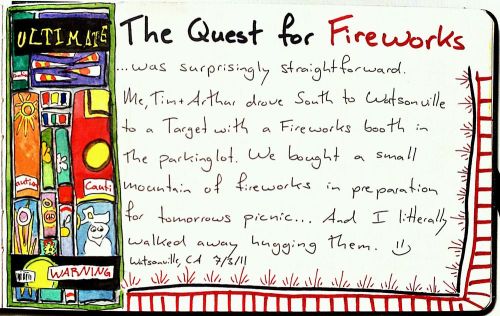 ULTIMATE
The Quest for Fireworks
...was surprisingly straightforward.
Me, Tim + Arthur drove South to Watsonville
to a Target with a Fireworks booth in
the parkinglot. We bought a small
mountain of fireworks in preparation
for tomorrows picnic... And I litterally
walked away hugging them. :)
Watsonville, CA 7/3/11
Cauti
WARNING